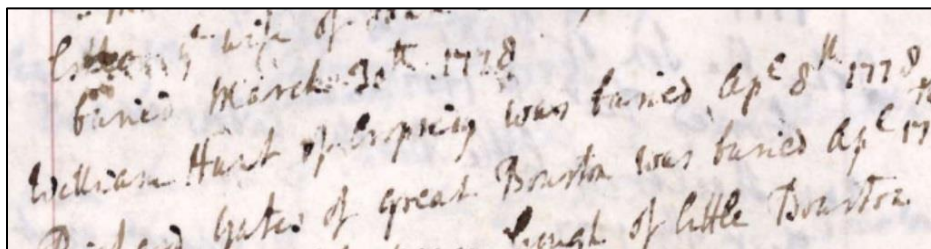 wife of
buried March 30th 1778
William Hunt of Cropredy was buried Apl 8th 1778
Richard Gates of great Bourton was buried Apl 17
Gough of little Bourton